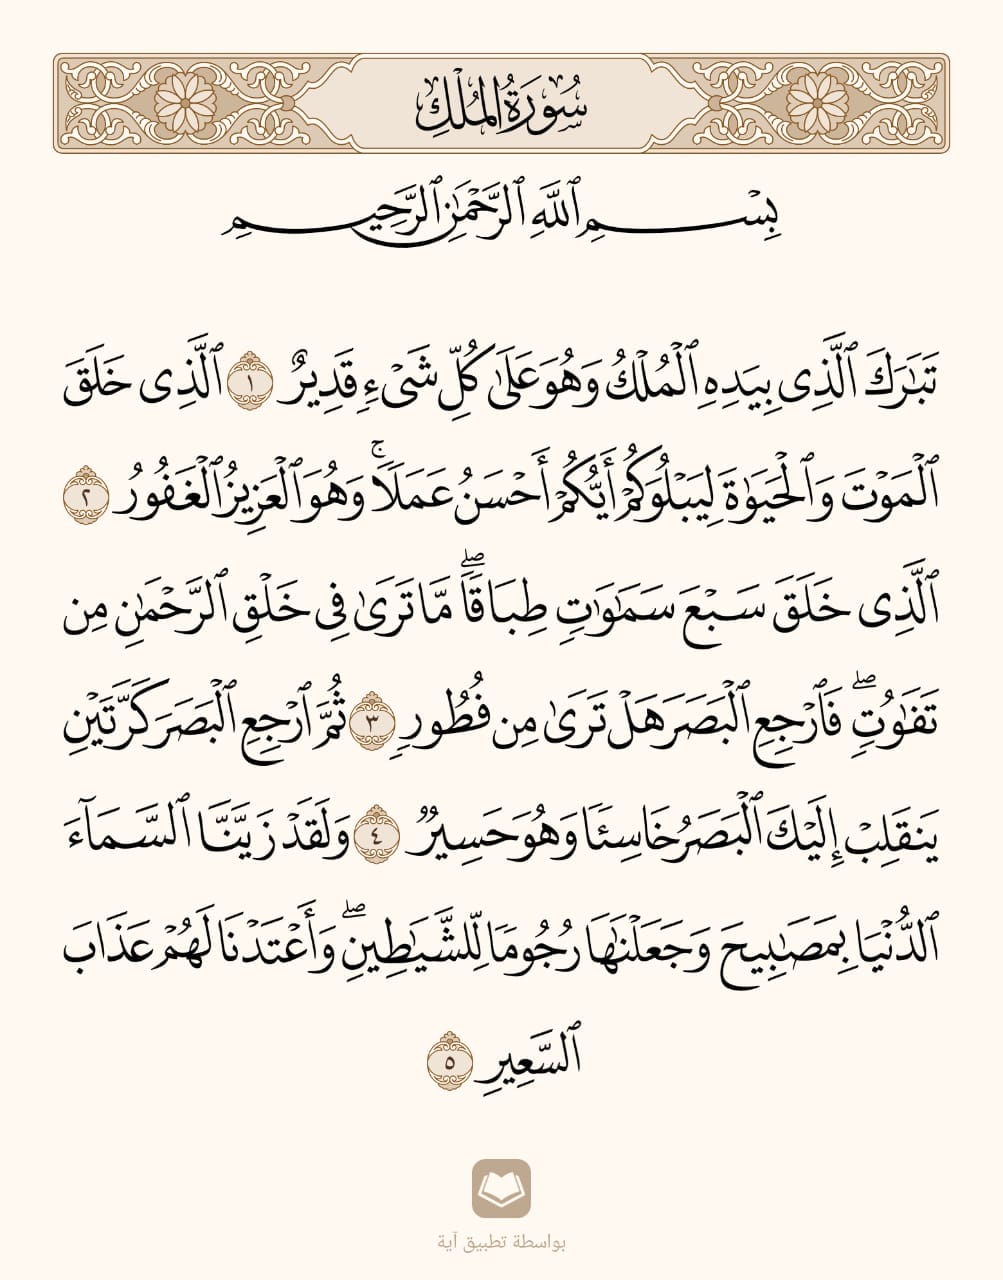 سُورَةُ المُلْكِ
بِسْمِ ٱللَّهِ ٱلرَّحْمَٰنِ ٱلرَّحِيمِ
تَبَٰرَكَ ٱلَّذِى بِيَدِهِ ٱلْمُلْكُ وَهُوَ عَلَىٰ كُلِّ شَىْءٍ قَدِيرٌ ١ ٱلَّذِى خَلَقَ
ٱلْمَوْتَ وَٱلْحَيَوٰةَ لِيَبْلُوَكُمْ أَيُّكُمْ أَحْسَنُ عَمَلًا ۚ وَهُوَ ٱلْعَزِيزُ ٱلْغَفُورُ ٢
ٱلَّذِى خَلَقَ سَبْعَ سَمَٰوَٰتٍ طِبَاقًا ۖ مَّا تَرَىٰ فِى خَلْقِ ٱلرَّحْمَٰنِ مِن
تَفَٰوُتٍ ۖ فَٱرْجِعِ ٱلْبَصَرَ هَلْ تَرَىٰ مِن فُطُورٍ ٣ ثُمَّ ٱرْجِعِ ٱلْبَصَرَ كَرَّتَيْنِ
يَنقَلِبْ إِلَيْكَ ٱلْبَصَرُ خَاسِئًا وَهُوَ حَسِيرٌ ٤ وَلَقَدْ زَيَّنَّا ٱلسَّمَآءَ
ٱلدُّنْيَا بِمَصَٰبِيحَ وَجَعَلْنَٰهَا رُجُومًا لِّلشَّيَٰطِينِ ۖ وَأَعْتَدْنَا لَهُمْ عَذَابَ
ٱلسَّعِيرِ ٥
بواسطة تطبيق آية